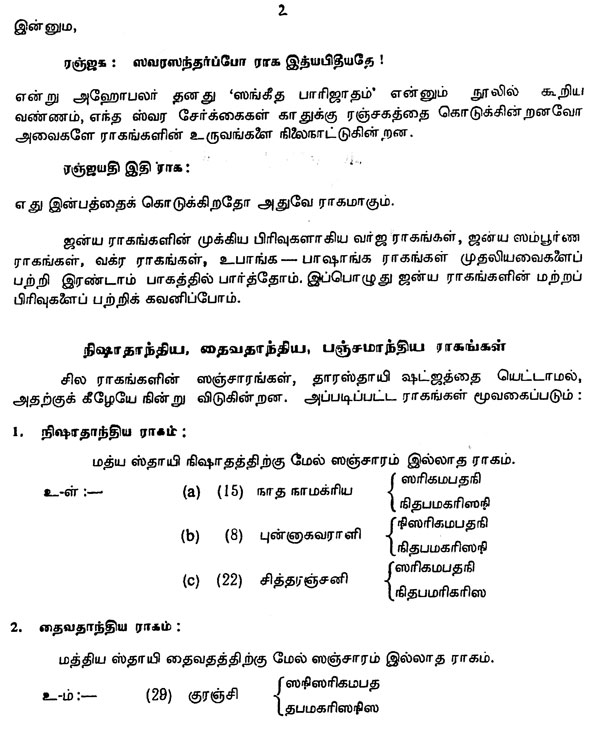 2
இன்னும,
ரஞ்ஜக : ஸ்வரஸந்தர்ப்போ ராக இத்யபிதீயதே !
என்று அஹோபலர் தனது 'ஸங்கீத பாரிஜாதம்' என்னும் நூலில் கூறிய
வண்ணம், எந்த ஸ்வர சேர்க்கைகள் காதுக்கு ரஞ்சகத்தை கொடுக்கின்றனவோ
அவைகளே ராகங்களின் உருவங்களை நிலைநாட்டுகின்றன.
ரஞ்ஜயதி இதி ராக :
எது இன்பத்தைக் கொடுக்கிறதோ அதுவே ராகமாகும்.
ஜன்ய ராகங்களின் முக்கிய பிரிவுகளாகிய வர்ஜ ராகங்கள், ஜன்ய ஸம்பூர்ண
ராகங்கள், வக்ர ராகங்கள், உபாங்க — பாஷாங்க ராகங்கள் முதலியவைகளைப்
பற்றி இரண்டாம் பாகத்தில் பார்த்தோம். இப்பொழுது ஜன்ய ராகங்களின் மற்றப்
பிரிவுகளைப் பற்றிக் கவனிப்போம்.
நிஷாதாந்திய, தைவதாந்திய, பஞ்சமாந்திய ராகங்கள்
சில ராகங்களின் ஸஞ்சாரங்கள், தாரஸ்தாயி ஷட்ஜத்தை யெட்டாமல்,
அதற்குக் கீழேயே நின்று விடுகின்றன. அப்படிப்பட்ட ராகங்கள் மூவகைப்படும் :
1. நிஷாதாந்திய ராகம் :
மத்ய ஸ்தாயி நிஷாதத்திற்கு மேல் ஸஞ்சாரம் இல்லாத ராகம்.
உ-ள் :— (a) (15) நாத நாமக்ரிய ஸரிகமபதநி
நிதபமகரிஸநி
(b) (8) புன்னாகவராளி நிஸரிகமபதநி
நிதபமகரிஸநி
(c) (22) சித்தரஞ்சனி ஸரிகமபதநி
நிதபமரிகரிஸ
2. தைவதாந்திய ராகம் :
மத்திய ஸ்தாயி தைவதத்திற்கு மேல் ஸஞ்சாரம் இல்லாத ராகம்.
உ-ம் :— (29) குரஞ்சி ஸநிஸரிகமபத
தபமகரிஸநிஸ